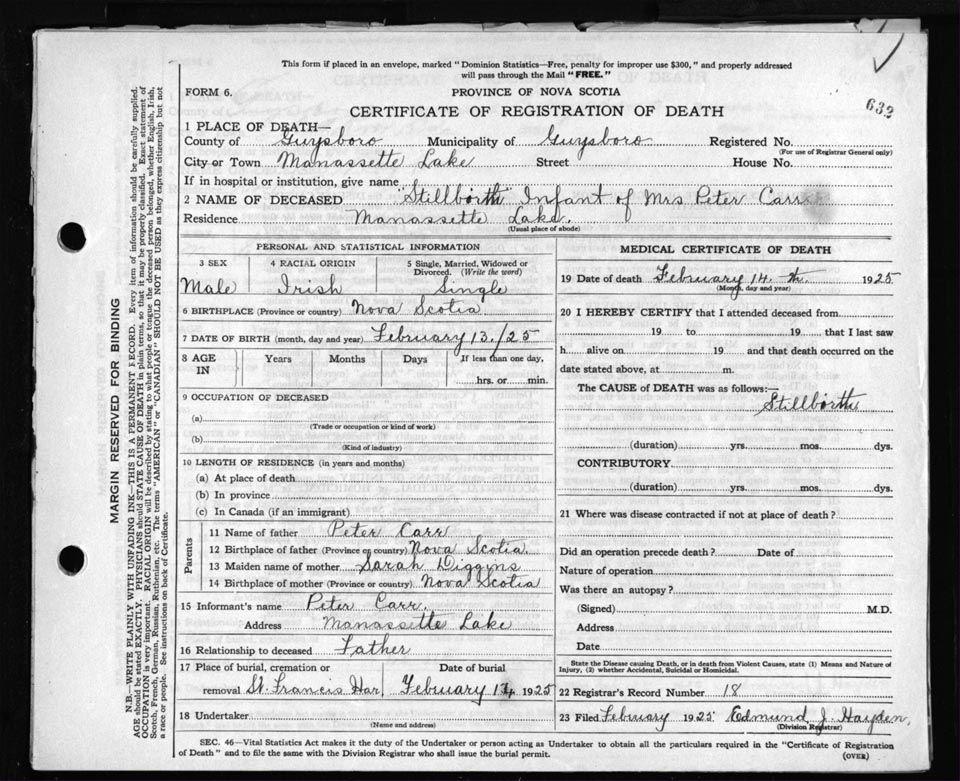 This form if placed in an envelope, marked "Dominion Statistics—Free, penalty for improper use $300," and properly addressed
will pass through the Mail "FREE."
FORM 6.
PROVINCE OF NOVA SCOTIA
632
CERTIFICATE OF REGISTRATION OF DEATH
1 PLACE OF DEATH—
County of Guysboro Municipality of Guysboro Registered No.
(For use of Registrar General only)
City or Town Manassette Lake Street House No.
If in hospital or institution, give name
2 NAME OF DECEASED "Stillbirth" Infant of Mrs Peter Carr
Residence Manassette Lake.
(Usual place of abode)
PERSONAL AND STATISTICAL INFORMATION
3 SEX
Male
4 RACIAL ORIGIN
Irish
5 Single, Married, Widowed or
Divorced. (Write the word)
Single
6 BIRTHPLACE (Province or country) Nova Scotia
7 DATE OF BIRTH (month, day and year) February 13./25
8 AGE IN
Years
Months
Days
If less than one day,
hrs. or min.
9 OCCUPATION OF DECEASED
(a)
(Trade or occupation or kind of work)
(b)
(Kind of industry)
10 LENGTH OF RESIDENCE (in years and months)
(a) At place of death
(b) In province
(c) In Canada (if an immigrant)
Parents
11 Name of father Peter Carr
12 Birthplace of father (Province or country) Nova Scotia.
13 Maiden name of mother Sarah Diggins
14 Birthplace of mother (Province or country) Nova Scotia
15 Informant's name Peter Carr.
Address Manassette Lake
16 Relationship to deceased Father
17 Place of burial, cremation or Date of burial
removal St. Francis Har, February 14 1925
18 Undertaker
(Name and address)
MEDICAL CERTIFICATE OF DEATH
19 Date of death February 14 th. 1925
(Month, day and year)
20 I HEREBY CERTIFY that I attended deceased from
19 to 19 that I last saw
h alive on 19 and that death occurred on the
date stated above, at m.
The CAUSE OF DEATH was as follows:—
Stillbirth
(duration) yrs. mos. dys.
CONTRIBUTORY
(duration) yrs. mos. dys.
21 Where was disease contracted if not at place of death?
Did an operation precede death? Date of
Nature of operation
Was there an autopsy?
(Signed) M.D.
Address
Date
State the Disease causing Death, or in death from Violent Causes, state (1) Means and Nature of
Injury, (2) whether Accidental, Suicidal or Homicidal.
22 Registrar's Record Number 18
23 Filed February 1925 Edmund J. Hayden.
(Division Registrar)
SEC. 46—Vital Statistics Act makes it the duty of the Undertaker or person acting as Undertaker to obtain all the particulars required in the "Certificate of Registration
of Death" and to file the same with the Division Registrar who shall issue the burial permit.
(OVER)
MARGIN RESERVED FOR BINDING
N.B.—WRITE PLAINLY WITH UNFADING INK—THIS IS A PERMANENT RECORD. Every item of information should be carefully supplied.
AGE should be stated EXACTLY. PHYSICIANS should STATE CAUSE OF DEATH in plain terms, so that it may be properly classified. Exact statement of
OCCUPATION is very important. RACIAL ORIGIN will be described by stating to what people or tongue the deceased person belonged, whether English, Irish,
Scotch, French, German, Russian, Ruthenian, etc. The terms "AMERICAN" or "CANADIAN" SHOULD NOT BE USED as they express citizenship but not
a race or people. See instructions on back of Certificate.